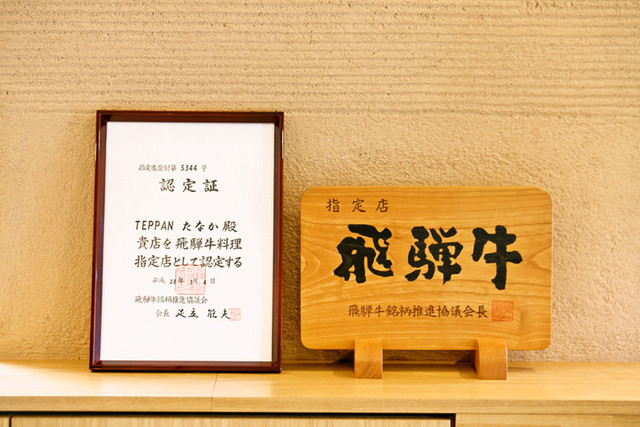 指定店登録第 5344 号
認定証
TEPPAN たなか 殿
貴店を飛騨牛料理
指定店として認定する
飛騨牛銘柄推進協議会
会長 足立 能夫
指定店
飛騨牛
飛騨牛銘柄推進協議会長